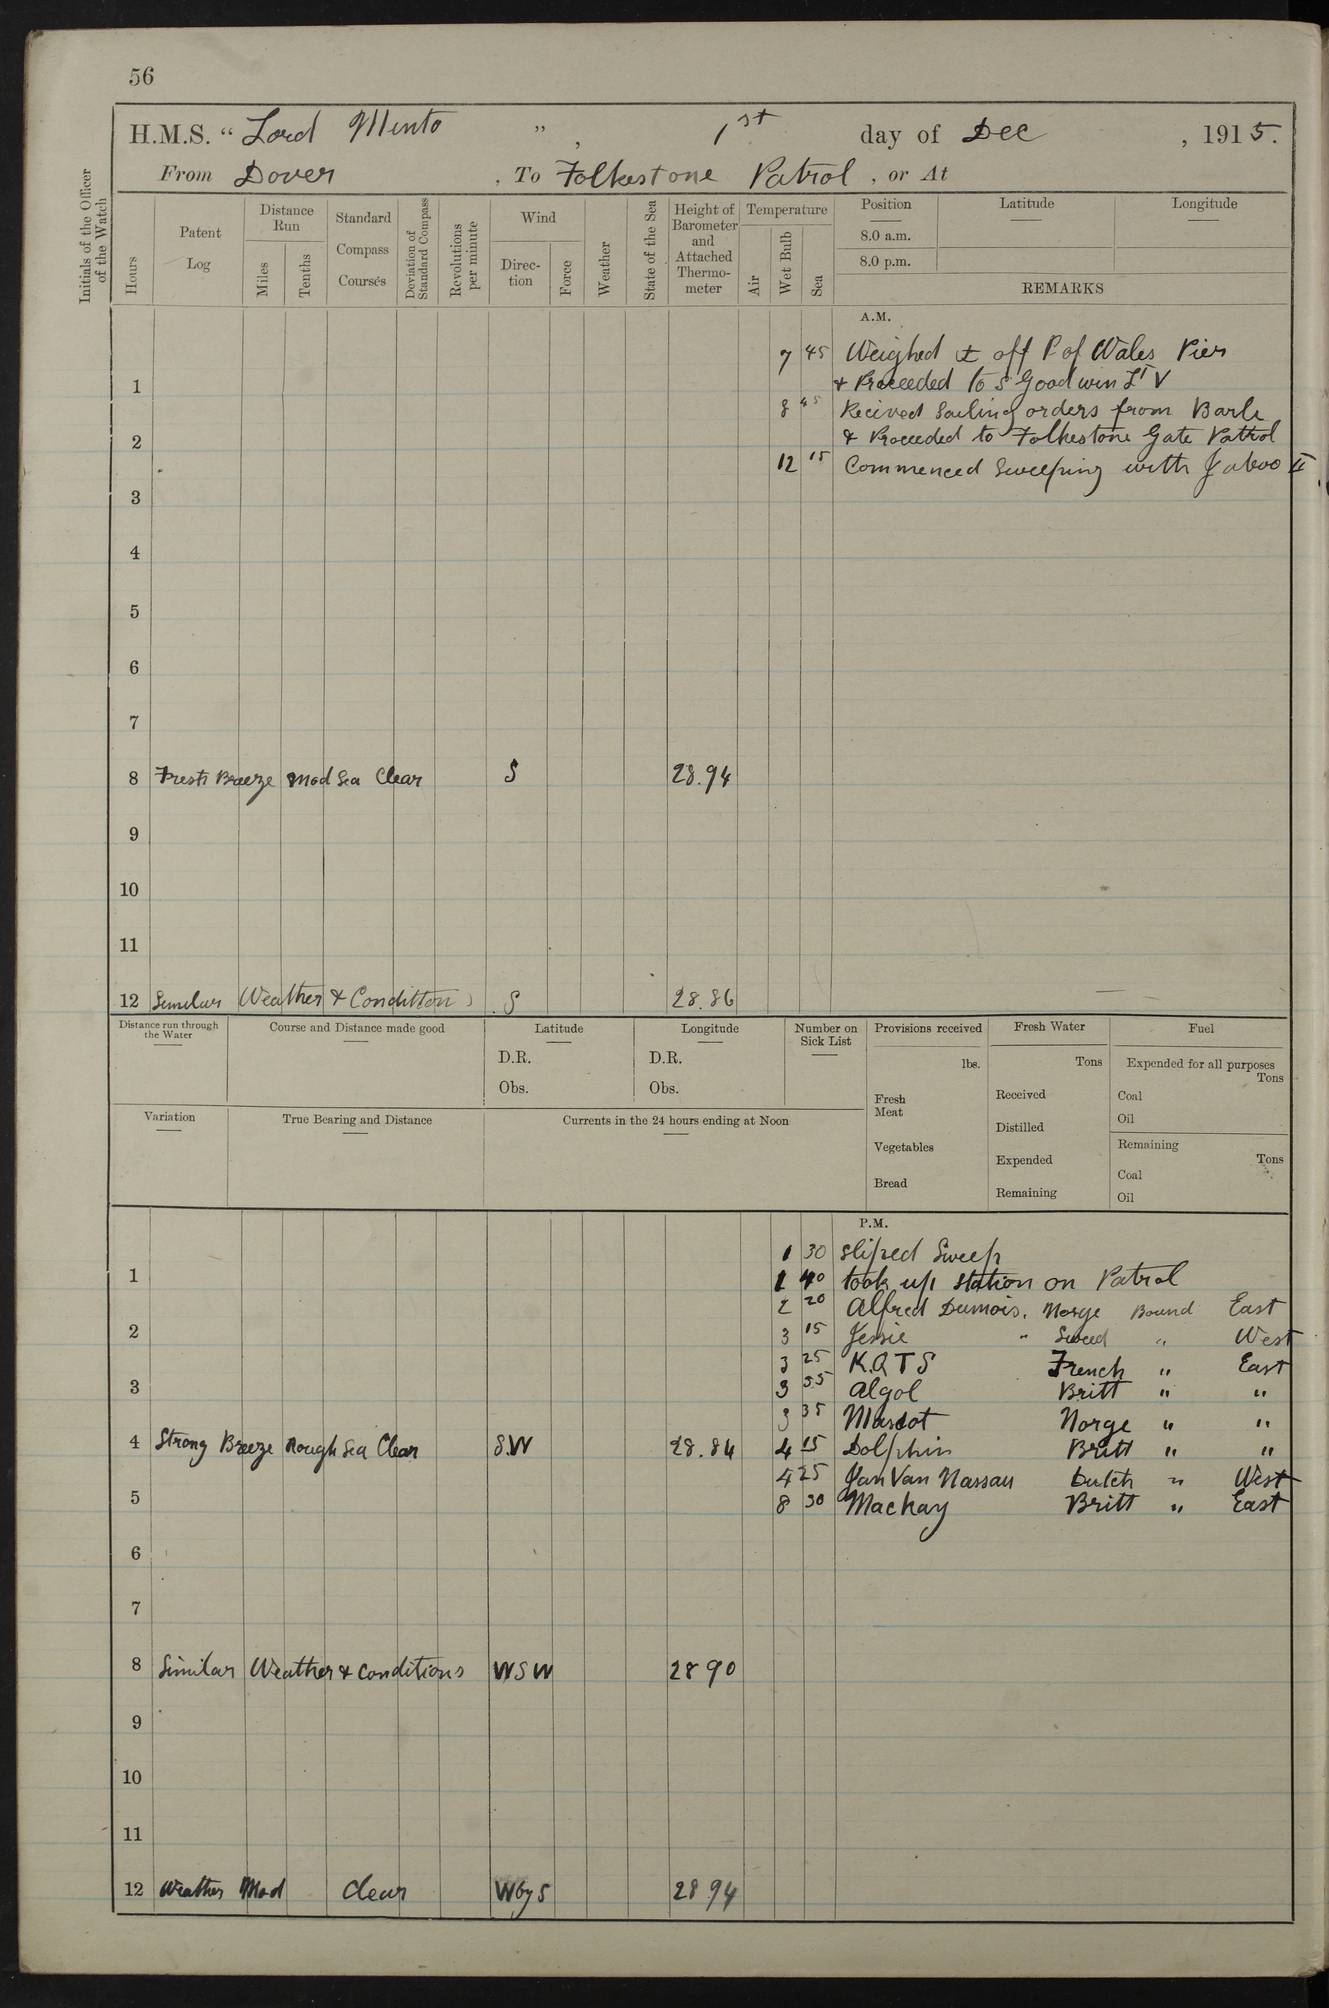 56
H.M.S. “ Lord Minto ” , 1st day of Dec , 1915.
From Dover , To Folkestone Patrol , or At
Initials of the Officer of the Watch
Hours
Patent Log
Distance Run
Miles
Tenths
Standard Compass Courses
Deviation of Standard Compass
Revolutions per minute
Wind
Direc-tion
Force
Weather
State of the Sea
Height of Barometer and Attached Thermo-meter
Temperature
Air
Wet Bulb
Sea
Position
8.0 a.m.
8.0 p.m.
Latitude
Longitude
REMARKS
A.M.
7 45 Weighed ⚓ off P of Wales Pier
1 & Proceeded to S Goodwin Lt V
8 45 Recived Sailing orders from
2 & Proceeded to Folkestone Gate Patrol
12 15 Commenced Sweeping with Jaboo II
3
4
5
6
7
8 Fresh Breeze Mod Sea Clear S 28.94
9
10
11
12 Similar Weather & Conditions S 28.86
Distance run through the Water
Course and Distance made good
Latitude
D.R.
Obs.
Longitude
D.R.
Obs.
Number on Sick List
Provisions received
lbs.
Fresh Meat
Vegetables
Bread
Fresh Water
Tons
Received
Distilled
Expended
Remaining
Fuel
Expended for all purposes
Tons
Coal
Oil
Remaining
Tons
Coal
Oil
Variation
True Bearing and Distance
Currents in the 24 hours ending at Noon
P.M.
1 30 sliped Sweep
1 1 40 took up station on Patrol
2 20 Alfred Dumois. Norge Bound East
2 3 15 Jessie " Sweed " West
3 25 K.Q T S French " East
3 3 55 Algol Britt " "
3 35 Mascot Norge " "
4 Strong Breeze Rough Sea Clear S.W 28.84 4 15 Dolphin Britt " "
4 25 Jan Van Nassau Dutch " West
5 8 30 Mackay Britt " East
6
7
8 Similar Weather & Conditions WSW 28 90
9
10
11
12 Weather Mod Clear W by S 28 94